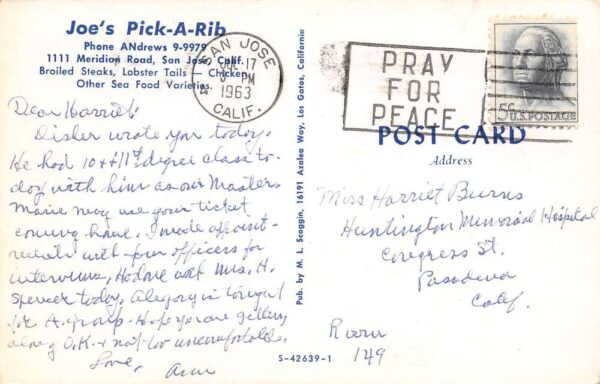 Joe's Pick-A-Rib
Phone ANdrews 9-9979
1111 Meridian Road, San Jose, Calif.
Broiled Steaks, Lobster Tails — Chicken,
Other Sea Food Varieties.
SAN JOSE
JUL 17
PM
1963
CALIF.
PRAY
FOR
PEACE
5¢ U.S. POSTAGE
POST CARD
Address
Dear Harriet:
wrote you today.
He had 10 & 11th degree class to-
day with him as our Master.
Marie may use your ticket
coming home. I made appoint-
ments with four officers for
interviews, had one with Mrs. H.
Spencer today. in tonight
for A. group. Hope you are getting
along O.K. & not too uncomfortable.
Love,
Pub. by M. L. Scoggin, 16191 Azalea Way, Los Gatos, California
Miss Harriet Burns
Huntington Memorial Hospital
Congress St.
Pasadena
Calif.
Room
149
S-42639-1